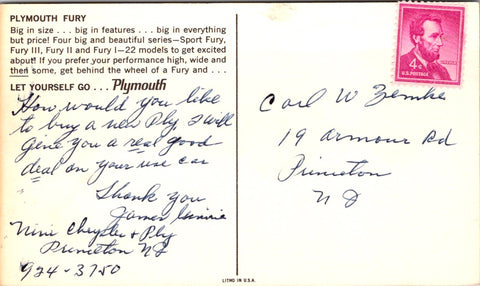 PLYMOUTH FURY
Big in size . . . big in features . . . big in everything
but price! Four big and beautiful series—Sport Fury,
Fury III, Fury II and Fury I—22 models to get excited
about! If you prefer your performance high, wide and
then some, get behind the wheel of a Fury and . . .
LET YOURSELF GO . . . Plymouth
How would you like
to buy a new Ply, I will
give you a real good
deal on your use car
Thank you
James
Nini Chrysler + Ply
Princeton NJ
924-3750
4¢
U.S. POSTAGE
Carl W Zemke
19 Armour Rd
Princeton
N J
LITHO IN U.S.A.